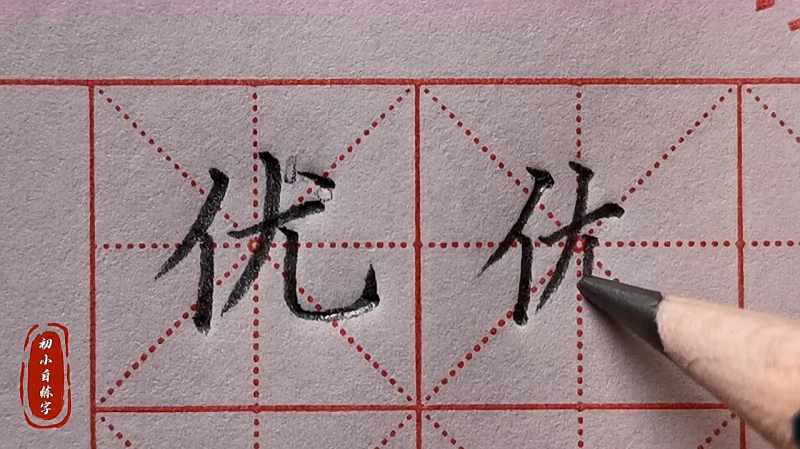 优
初小自练字